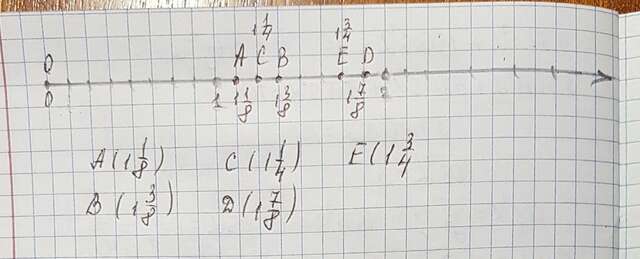 1 1/4 1 3/4
O A C B E D
0 1 1 1/8 1 3/8 1 7/8 2
A (1 1/8) C (1 1/4) E (1 3/4
B (1 3/8) D (1 7/8)